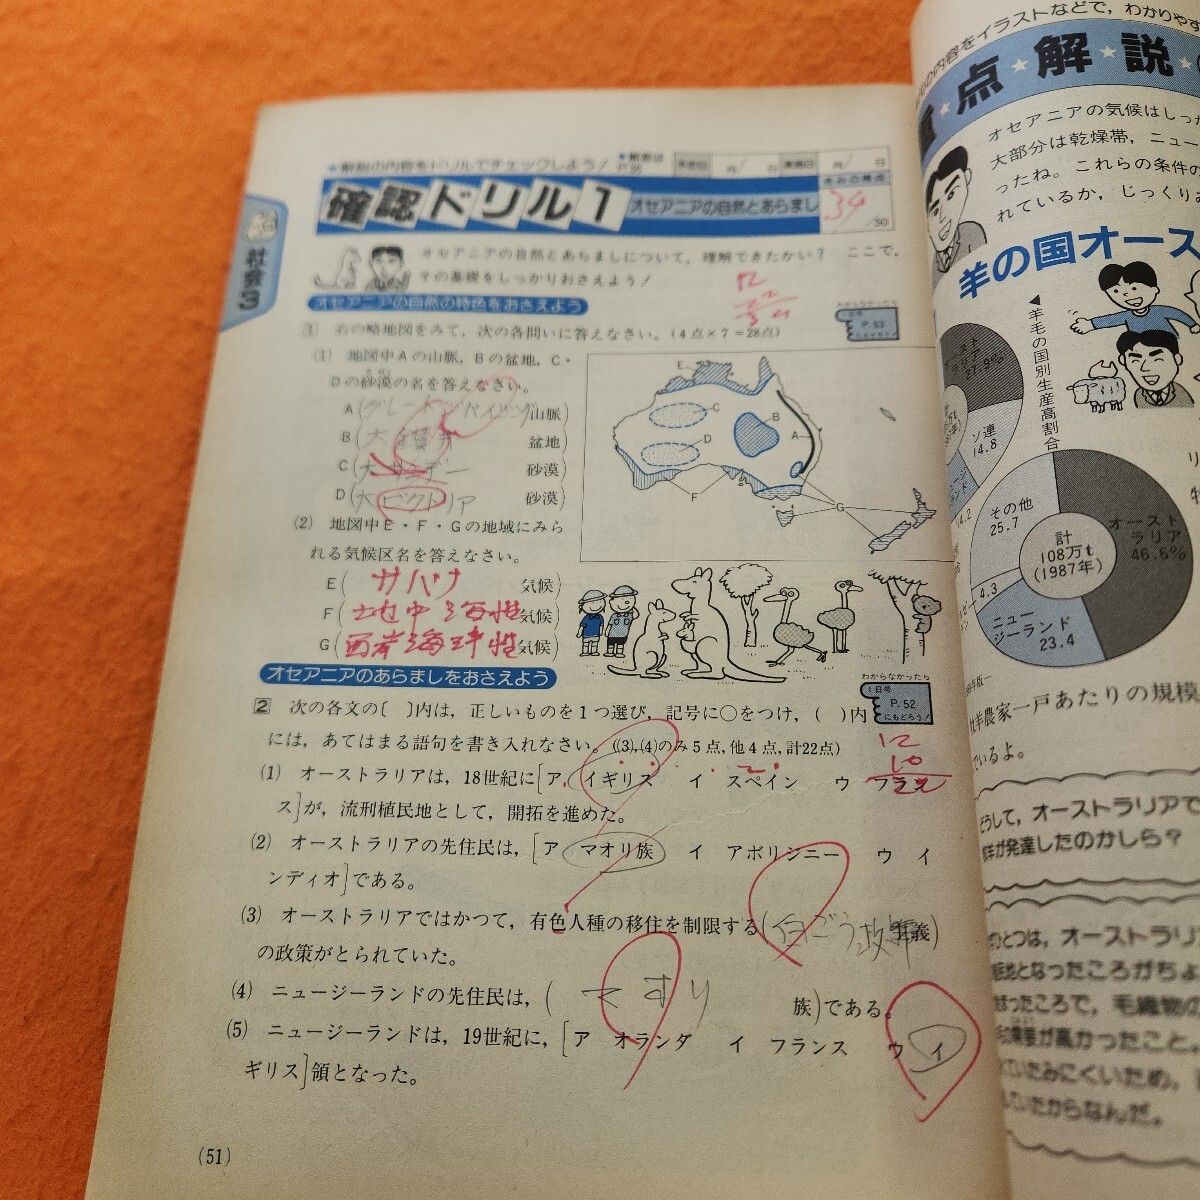 解説の内容をドリルでチェックしよう!
確認ドリル1
オセアニアの自然とあらまし
きみの得点
34
/50
社会3
オセアニアの自然とあらましについて,理解できたかい? ここで,
その基礎をしっかりおさえよう!
オセアニアの自然の特色をおさえよう
1 右の略地図をみて,次の各問いに答えなさい。(4点×7=28点)
わからなかったら
P.53
(1) 地図中Aの山脈,Bの盆地,C・
Dの砂漠の名を答えなさい。
A( 山脈)
B( 盆地
C( 砂漠)
D(大ビクトリア 砂漠)
(2) 地図中E・F・Gの地域にみら
れる気候区名を答えなさい。
E( サバナ 気候)
F( 地中海性 気候)
G( 西岸海洋性 気候)
E
C
B
D
A
F
G
オセアニアのあらましをおさえよう
わからなかったら
1日号
P.52
にもどろう!
2 次の各文の[ ]内は,正しいものを1つ選び,記号に○をつけ,( )内
には,あてはまる語句を書き入れなさい。((3),(4)のみ5点,他4点,計22点)
(1) オーストラリアは,18世紀に[ア イギリス イ スペイン ウ フラン
ス]が,流刑植民地として,開拓を進めた。
(2) オーストラリアの先住民は,[ア マオリ族 イ アボリジニー ウ イ
ンディオ]である。
(3) オーストラリアではかつて,有色人種の移住を制限する(白ごう主義)
の政策がとられていた。
(4) ニュージーランドの先住民は,( 族)である。
(5) ニュージーランドは,19世紀に,[ア オランダ イ フランス ウ イ
ギリス]領となった。
(51)
の内容をイラストなどで,わかりやす
点★解★説
オセアニアの気候はしっ
大部分は乾燥帯,ニュー
ったね。これらの条件の
れているか,じっくりみ
羊の国オース
◀羊毛の国別生産高割合
オースト
27.9%
ソ連
14.8
14.2
その他
25.7
オースト
ラリア
46.6%
計
108万t
(1987年)
4.3
ニュー
ジーランド
23.4
牧羊農家一戸あたりの規模
いるよ。
どうして,オーストラリアで
羊が発達したのかしら?
ひとつは,オーストラリ
民地となったころがちょ
まったころで,毛織物の
の需要が高かったこと。
ていたみにくいため,
していたからなんだ。